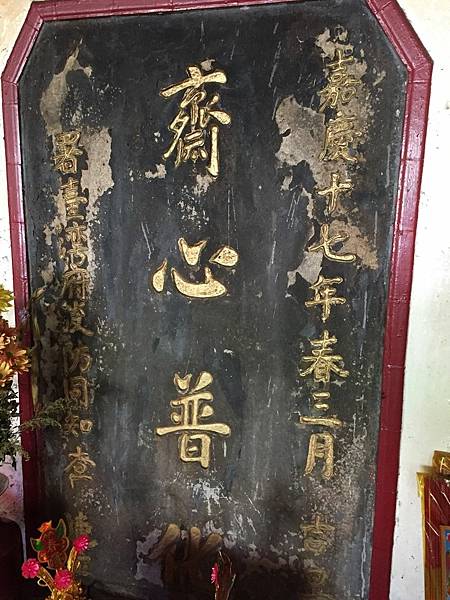 嘉慶十七年春三月 吉
齋心普
署臺灣府淡防同知查